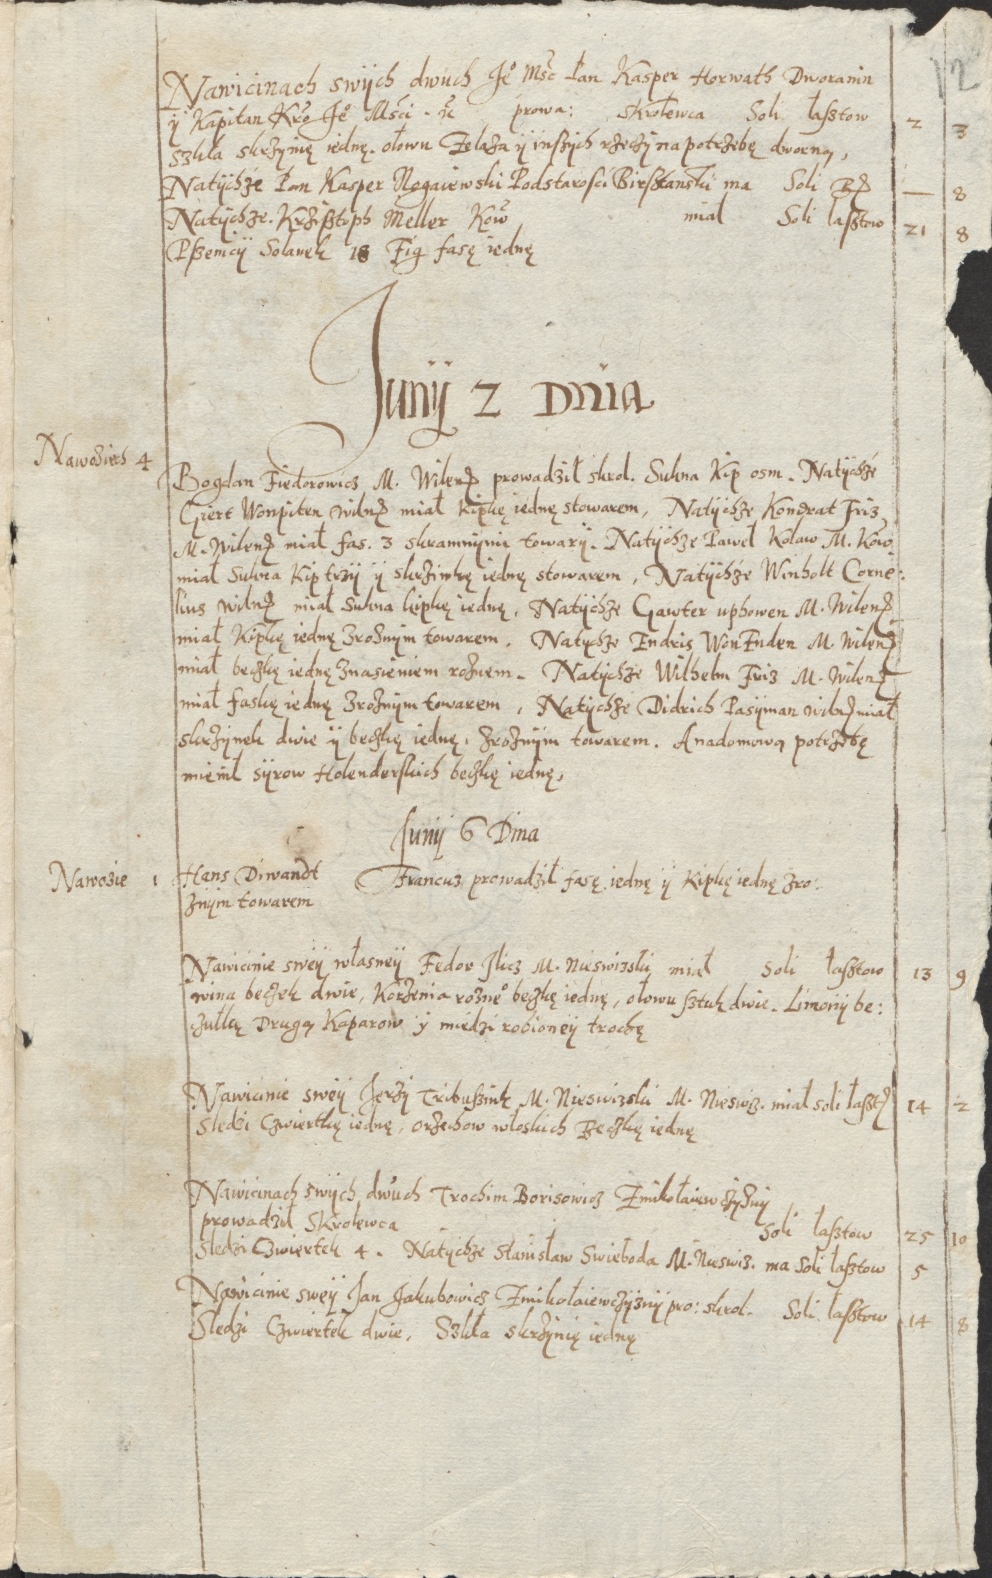 12
Nawicinach swÿch dwuch Je° Msc Pan Kasper Horwath Dworanin
ÿ Kapitan Kro Je° Msci. prowa: skrolewca Soli łasztow 2 3
szkła skrzynię iednę. ołowu Żelaza ÿ inszÿch rzeczÿ na potrzebę dworną,
Natÿchże Pan Kasper Nogaiewski Podstarosci Birsztanski ma Soli — 8
Natÿchże. Krzisztoph Meller Kow miał Soli łasztow 21 8
Pszenicÿ Solanek 18 Fig fasę iednę
Junÿ 2 Dnia
Nawoziech 4
Bogdan Fiedorowicz M. Wilen prowadził skrol. Sukna Kip osm. Natÿchże
Giert Wonpiten wiln miał Kipkę iednę stowarem, Natÿchże Kondrat Friz
M. Wilen miał fas. 3 skramnÿmi towarÿ. Natÿchże Paweł Kolaw M. Kow
miał Sukna Kip trzÿ ÿ skrzinkę iednę stowarem, Natÿchże Winholt Corne:
lius wiln miał Sukna kipkę iednę, Natÿchże Gawter uphowen M. Wilen
miał Kipkę iednę zrożnÿm towarem. Natÿchże Endris WonEnden M. Wilen
miał beczkę iednę znasieniem rożnem. Natÿchże Wilhelm Friz M. Wilen
miał faskę iednę zrożnÿm towarem, Natÿchże Didrich Pasÿman wiln miał
skrzÿnek dwie ÿ beczkę iednę, zrożnÿm towarem. Anadomową potrzebę
mieni sÿrow Holenderskich beczkę iednę,
Junÿ 6 Dnia
Nawozie 1
Hans Diwandt Francuz prowadził fasę iednę ÿ Kipkę iednę zro:
żnÿm towarem
Nawicinie sweÿ własneÿ Fedor Ilicz M. Nieswizski miał Soli łasztow 13 9
wina beczek dwie, Korzenia rożne° beczkę iednę, ołowu sztuk dwie. Limonÿ be:
czułkę Drugą Kaparow ÿ miedzi robioneÿ trochę
Nawicinie sweÿ Jerzÿ Tribuszink M. Nieswizski M. Nieswiz. miał soli łaszt 14 2
Sledzi Czwiertkę iednę, orzechow włoskich Beczkę iednę
Nawicinach swÿch dwuch Trochim Borisowicz Zmikołaiewczÿznÿ
prowadził Skrolewca Soli łasztow 25 10
Sledzi Czwiertek 4. Natÿchże Stanisław Swieboda M. Nieswiz. ma Soli łasztow 5
Nawicinie sweÿ Jan Jakubowicz Zmikołaiewczÿznÿ pro: skrol. Soli łasztow 14 8
Sledzi Czwiertek dwie, Szkła skrzÿnię iednę